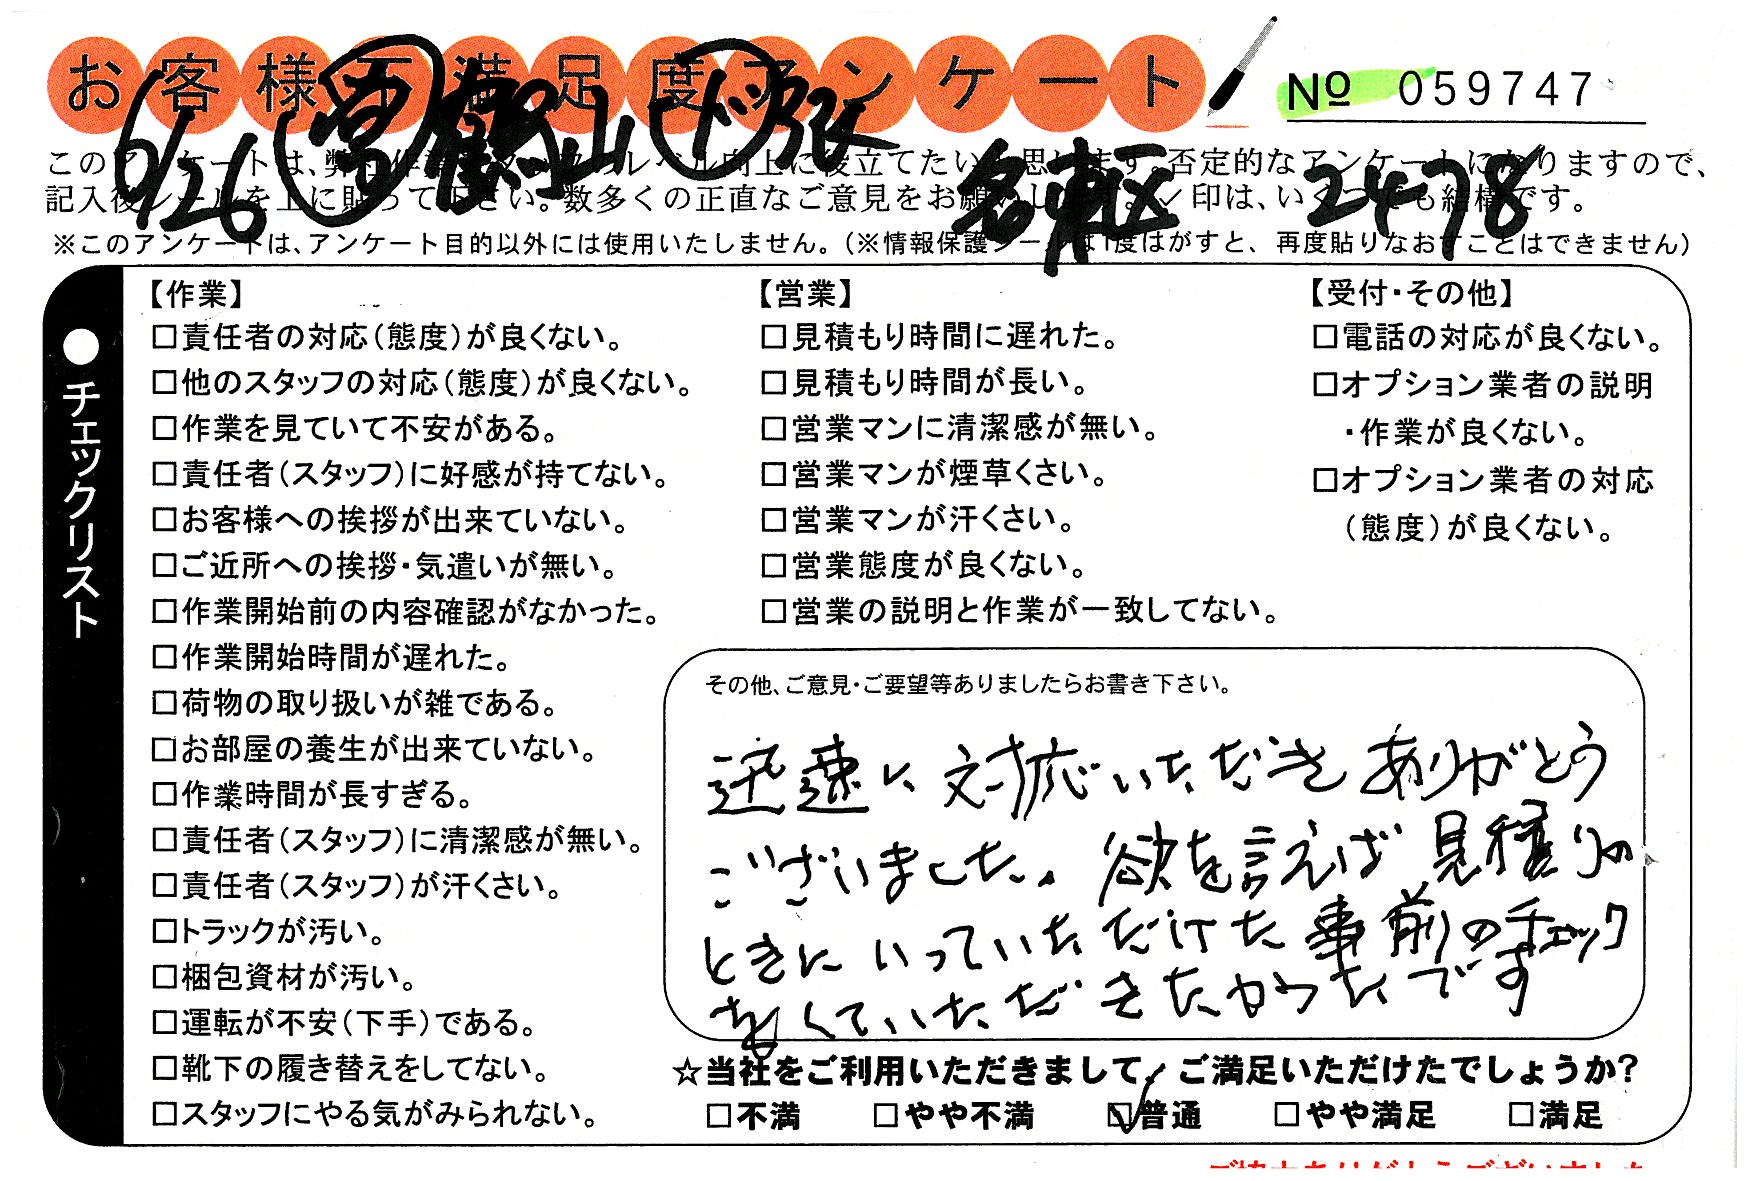 お客様不満足度アンケート
№ 059747
6/26 営 山 ド 張
名東区 2478
このアンケートは、弊社作業スタッフのレベル向上に役立てたいと思います。否定的なアンケートになりますので、
記入後シールを上に貼って下さい。数多くの正直なご意見をお願いします。✓印は、いくつでも結構です。
※このアンケートは、アンケート目的以外には使用いたしません。(※情報保護シールは1度はがすと、再度貼りなおすことはできません)
●チェックリスト
【作業】
□責任者の対応(態度)が良くない。
□他のスタッフの対応(態度)が良くない。
□作業を見ていて不安がある。
□責任者(スタッフ)に好感が持てない。
□お客様への挨拶が出来ていない。
□ご近所への挨拶・気遣いが無い。
□作業開始前の内容確認がなかった。
□作業開始時間が遅れた。
□荷物の取り扱いが雑である。
□お部屋の養生が出来ていない。
□作業時間が長すぎる。
□責任者(スタッフ)に清潔感が無い。
□責任者(スタッフ)が汗くさい。
□トラックが汚い。
□梱包資材が汚い。
□運転が不安(下手)である。
□靴下の履き替えをしてない。
□スタッフにやる気がみられない。
【営業】
□見積もり時間に遅れた。
□見積もり時間が長い。
□営業マンに清潔感が無い。
□営業マンが煙草くさい。
□営業マンが汗くさい。
□営業態度が良くない。
□営業の説明と作業が一致してない。
【受付・その他】
□電話の対応が良くない。
□オプション業者の説明
・作業が良くない。
□オプション業者の対応
(態度)が良くない。
その他、ご意見・ご要望等ありましたらお書き下さい。
迅速に対応いただきありがとう
ございました。欲を言えば見積りの
ときにいっていただけた事前のチェック
をしていただきたかったです
☆当社をご利用いただきまして、ご満足いただけたでしょうか?
□不満 □やや不満 ☑普通 □やや満足 □満足
ご協力ありがとうございました